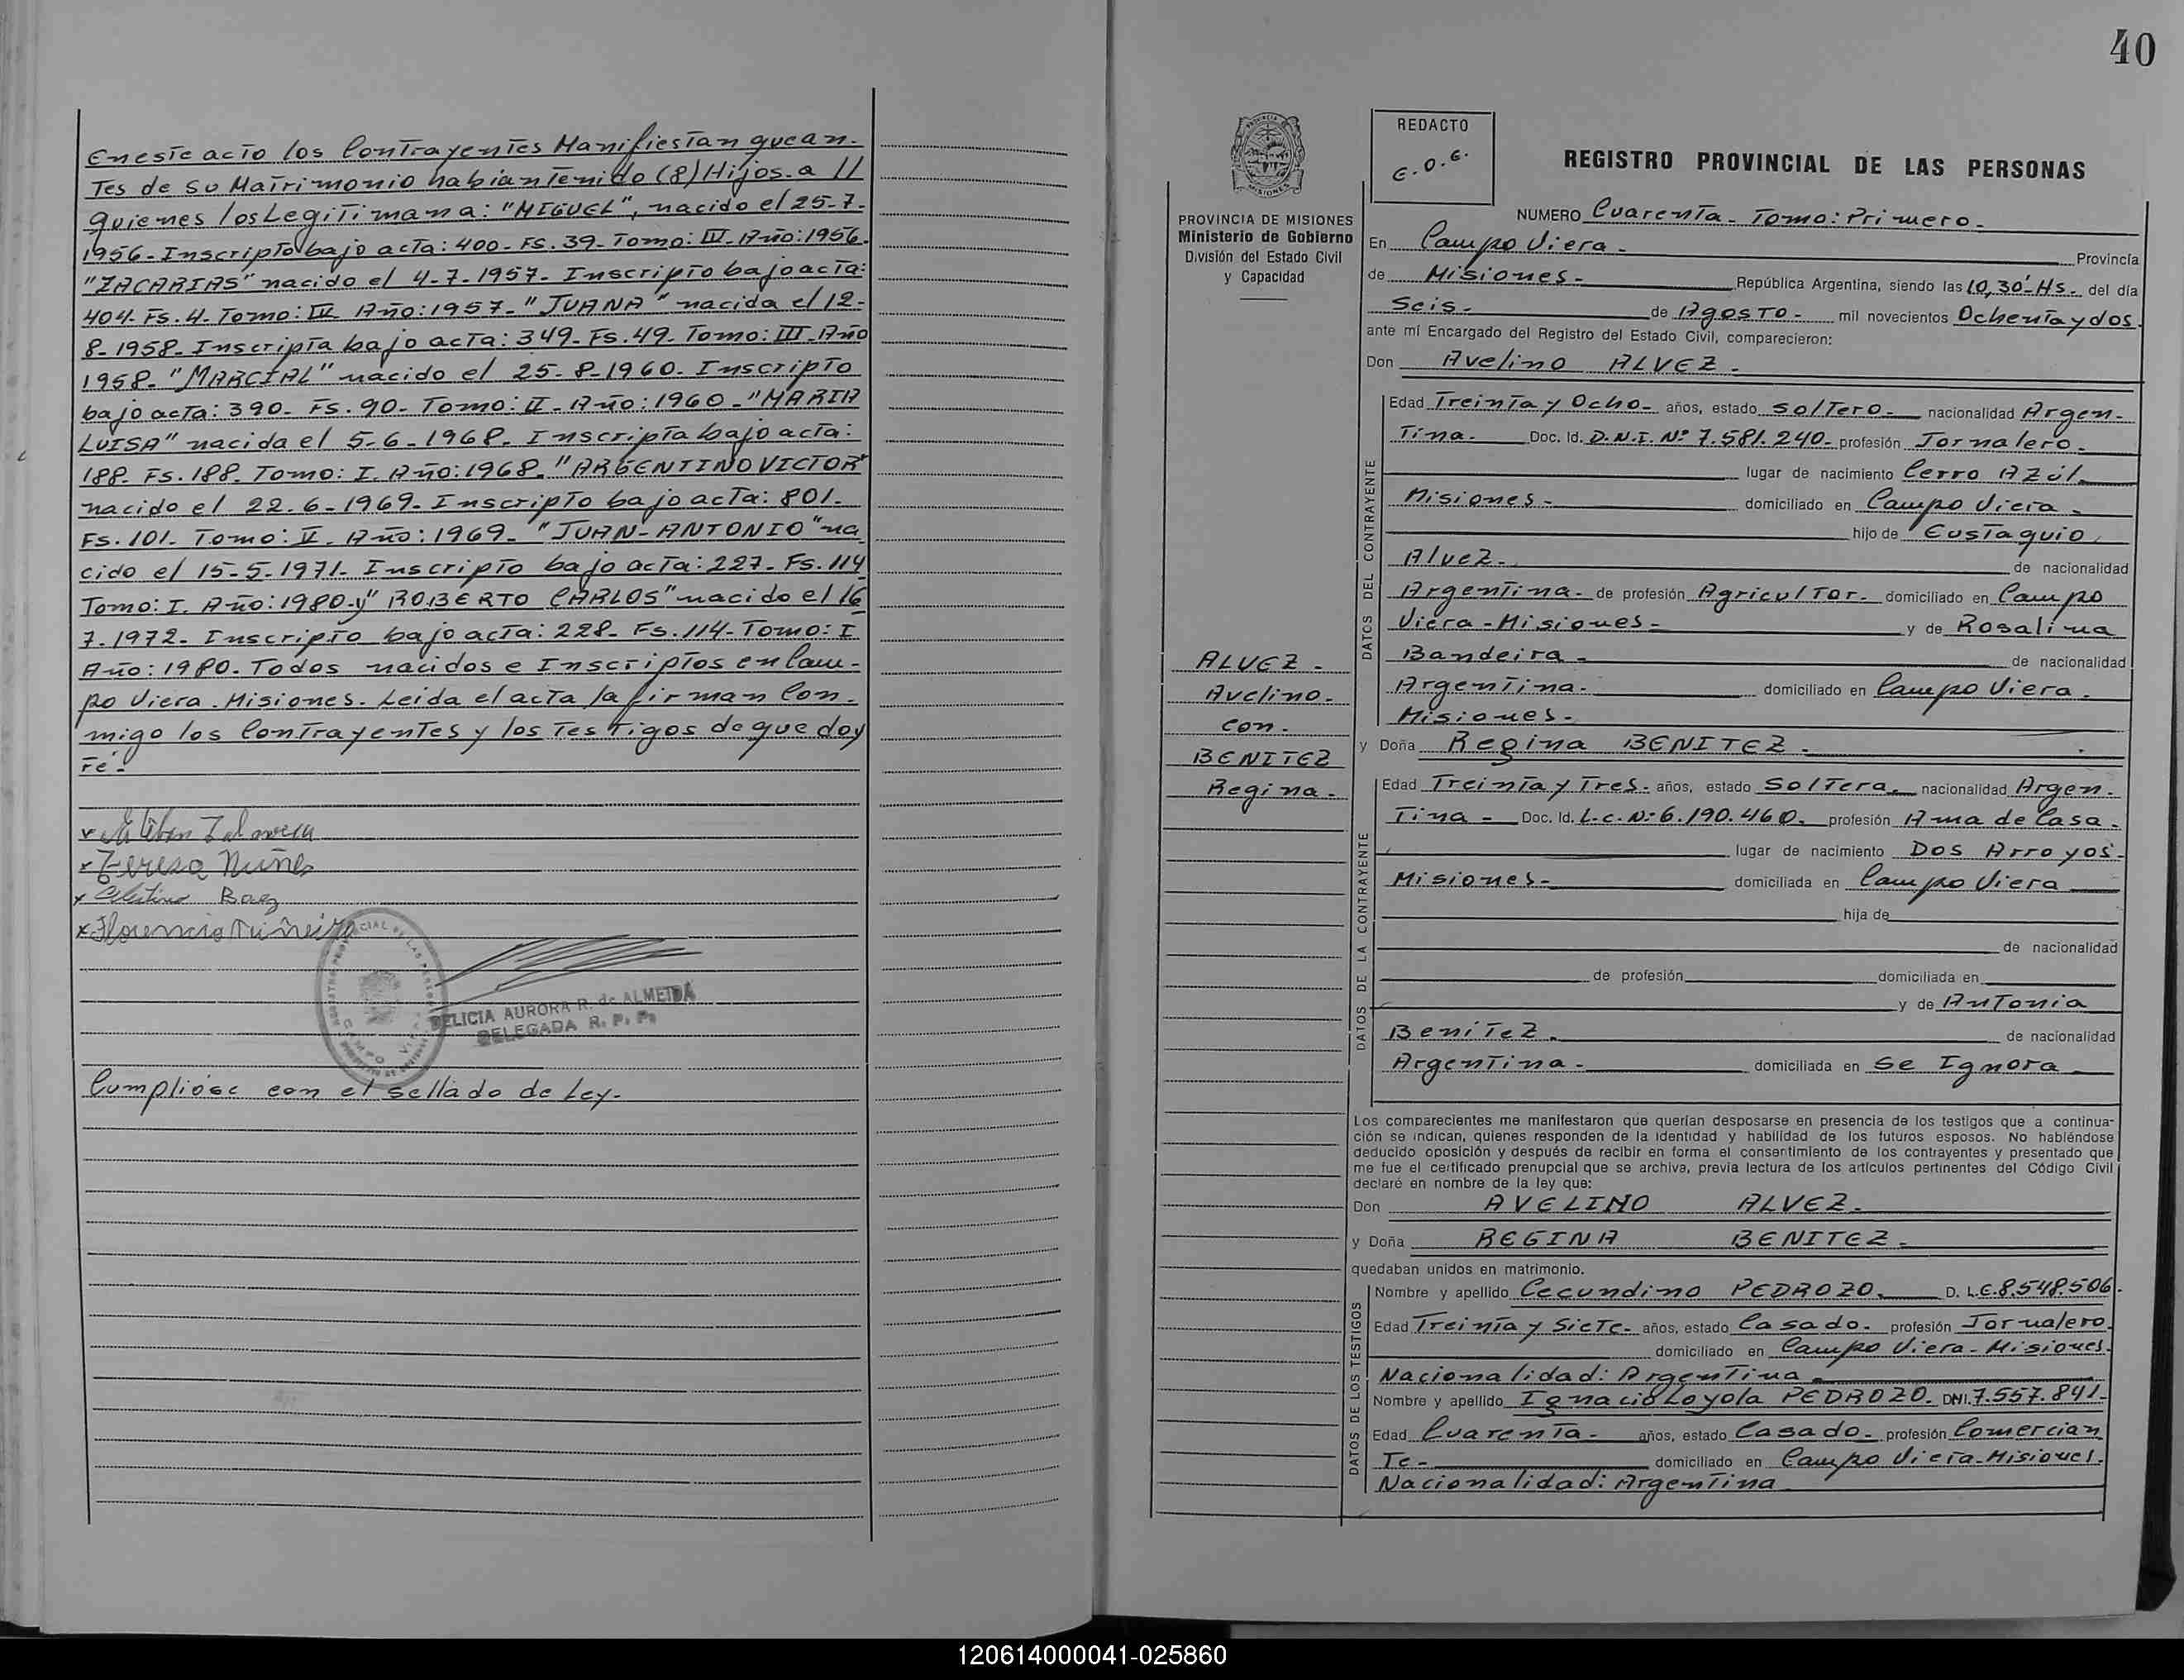 En este acto los Contrayentes Manifiestan que an-
Tes de su Matrimonio habian tenido (8) Hijos. a //
quienes los Legitiman a: "MIGUEL", nacido el 25-7-
1956- Inscripto bajo acta: 400- Fs. 39- Tomo: III- Año: 1956.
"ZACARIAS" nacido el 4-7-1957- Inscripto bajo acta:
404. Fs. 4. Tomo: IV. Año: 1957- "JUANA" nacida el 12-
8-1958- Inscripta bajo acta: 349- Fs. 49. Tomo: III- Año
1958- "MARCIAL" nacido el 25-8-1960- Inscripto
bajo acta: 390- Fs. 90- Tomo: II- Año: 1960- "MARIA
LUISA" nacida el 5-6-1968- Inscripta bajo acta:
188- Fs. 188. Tomo: I. Año: 1968. "ARGENTINO VICTOR"
nacido el 22-6-1969- Inscripto bajo acta: 801-
Fs. 101- Tomo: V. Año: 1969- "JUAN-ANTONIO" na
cido el 15-5-1971- Inscripto bajo acta: 227- Fs. 114
Tomo: I. Año: 1980- y "ROBERTO CARLOS" nacido el 16
7-1972- Inscripto bajo acta: 228- Fs. 114- Tomo: I
Año: 1980. Todos nacidos e Inscriptos en Cam-
po Viera. Misiones. Leida el acta la firman Con-
migo los Contrayentes y los Testigos de que doy
Fé-
Teresa Nuñes
Baez
Florencio
DELICIA AURORA R. de ALMEIDA
DELEGADA R. P. P.
Cumplióse con el sellado de Ley-
40
PROVINCIA DE MISIONES
Ministerio de Gobierno
División del Estado Civil
y Capacidad
ALVEZ-
Avelino-
con-
BENITEZ
Regina-
REDACTO
E.O.E.
REGISTRO PROVINCIAL DE LAS PERSONAS
NUMERO Cuarenta- Tomo: Primero-
En Campo Viera- Provincia
de Misiones- República Argentina, siendo las 10,30´-Hs- del día
Seis- de Agosto- mil novecientos Ochenta y dos
ante mí Encargado del Registro del Estado Civil, comparecieron:
Don Avelino ALVEZ-
DATOS DEL CONTRAYENTE
Edad Treinta y Ocho- años, estado Soltero- nacionalidad Argen-
Tina- Doc. Id. D.N.I. Nº 7.581.240- profesión Jornalero-
lugar de nacimiento Cerro Azúl
Misiones- domiciliado en Campo Viera-
hijo de Eustaquio
Alvez- de nacionalidad
Argentina- de profesión Agricultor- domiciliado en Campo
Viera-Misiones- y de Rosalina
Bandeira- de nacionalidad
Argentina- domiciliado en Campo Viera-
Misiones-
y Doña Regina BENITEZ-
DATOS DE LA CONTRAYENTE
Edad Treinta y Tres- años, estado Soltera- nacionalidad Argen-
Tina- Doc. Id. L.C. Nº 6.190.460- profesión Ama de Casa-
lugar de nacimiento Dos Arroyos-
Misiones- domiciliada en Campo Viera
hija de
de nacionalidad
de profesión domiciliada en
y de Antonia
Benitez- de nacionalidad
Argentina- domiciliada en Se Ignora
Los comparecientes me manifestaron que querían desposarse en presencia de los testigos que a continua-
ción se indican, quienes responden de la identidad y habilidad de los futuros esposos. No habiéndose
deducido oposición y después de recibir en forma el consentimiento de los contrayentes y presentado que
me fue el certificado prenupcial que se archiva, previa lectura de los artículos pertinentes del Código Civil
declaré en nombre de la ley que:
Don AVELINO ALVEZ-
y Doña REGINA BENITEZ-
quedaban unidos en matrimonio.
DATOS DE LOS TESTIGOS
Nombre y apellido Cecundino PEDROZO- D. L.E. 8.548.506-
Edad Treinta y Siete- años, estado Casado- profesión Jornalero
domiciliado en Campo Viera-Misiones-
Nacionalidad: Argentina
Nombre y apellido Ignacio Loyola PEDROZO- DNI. 7.557.841-
Edad Cuarenta- años, estado Casado- profesión Comercian
Te- domiciliado en Campo Viera-Misiones-
Nacionalidad: Argentina
120614000041-025860